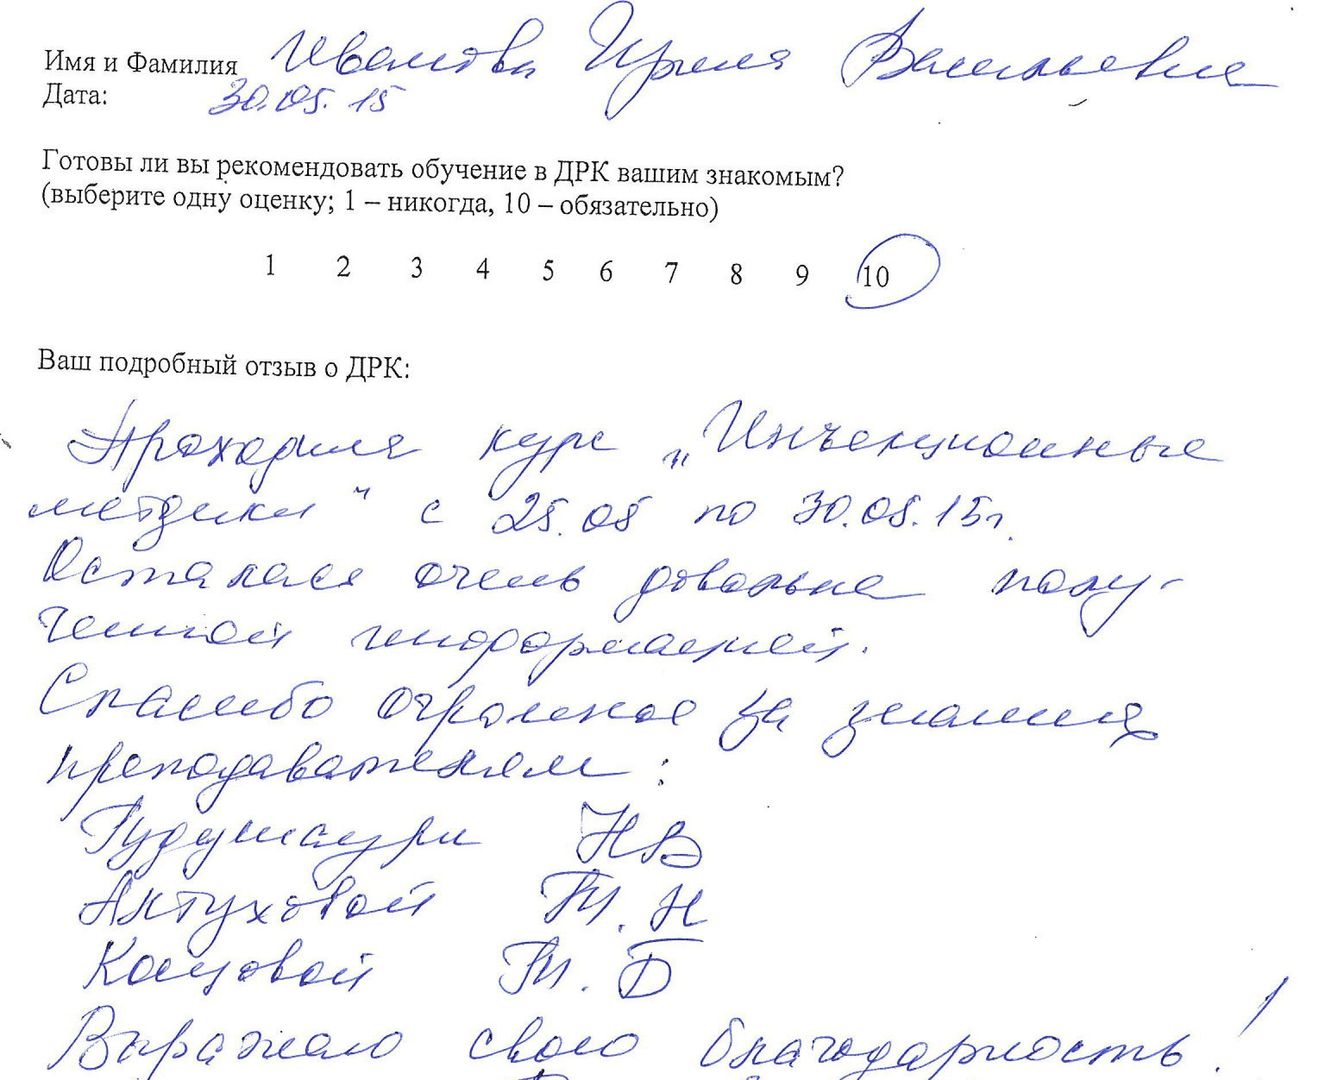 Имя и Фамилия Иванова Ирина Васильевна
Дата: 30.05.15
Готовы ли вы рекомендовать обучение в ДРК вашим знакомым?
(выберите одну оценку; 1 – никогда, 10 – обязательно)
1 2 3 4 5 6 7 8 9 10
Ваш подробный отзыв о ДРК:
Проходила курс „Инъекционные
методики" с 25.05 по 30.05.15г.
Осталась очень довольна полу-
ченной информацией.
Спасибо огромное за знания
преподавателям:
Гудушаури Н В
Актуховой Т. Н
Концовой Т. Б
Выражаю свою благодарность!